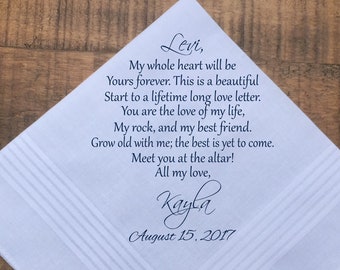 Levi,
My whole heart will be
Yours forever. This is a beautiful
Start to a lifetime long love letter.
You are the love of my life,
My rock, and my best friend.
Grow old with me; the best is yet to come.
Meet you at the altar!
All my love,
Kayla
August 15, 2017